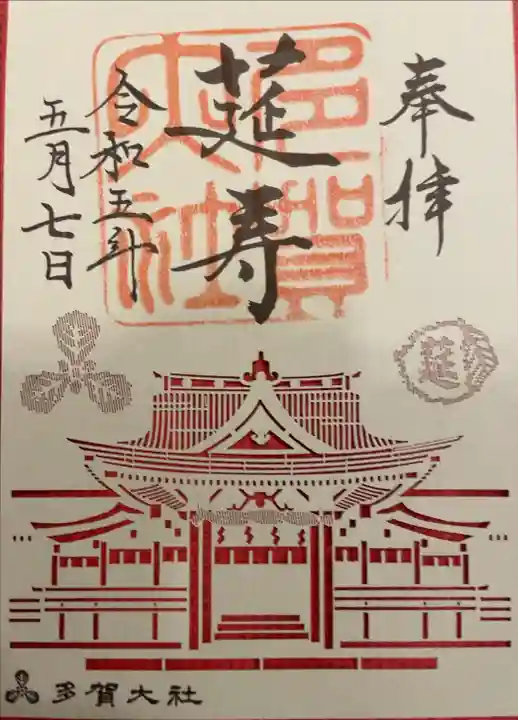 奉拝
多賀
大社
莚寿
令和五年
五月七日
莚
多賀大社